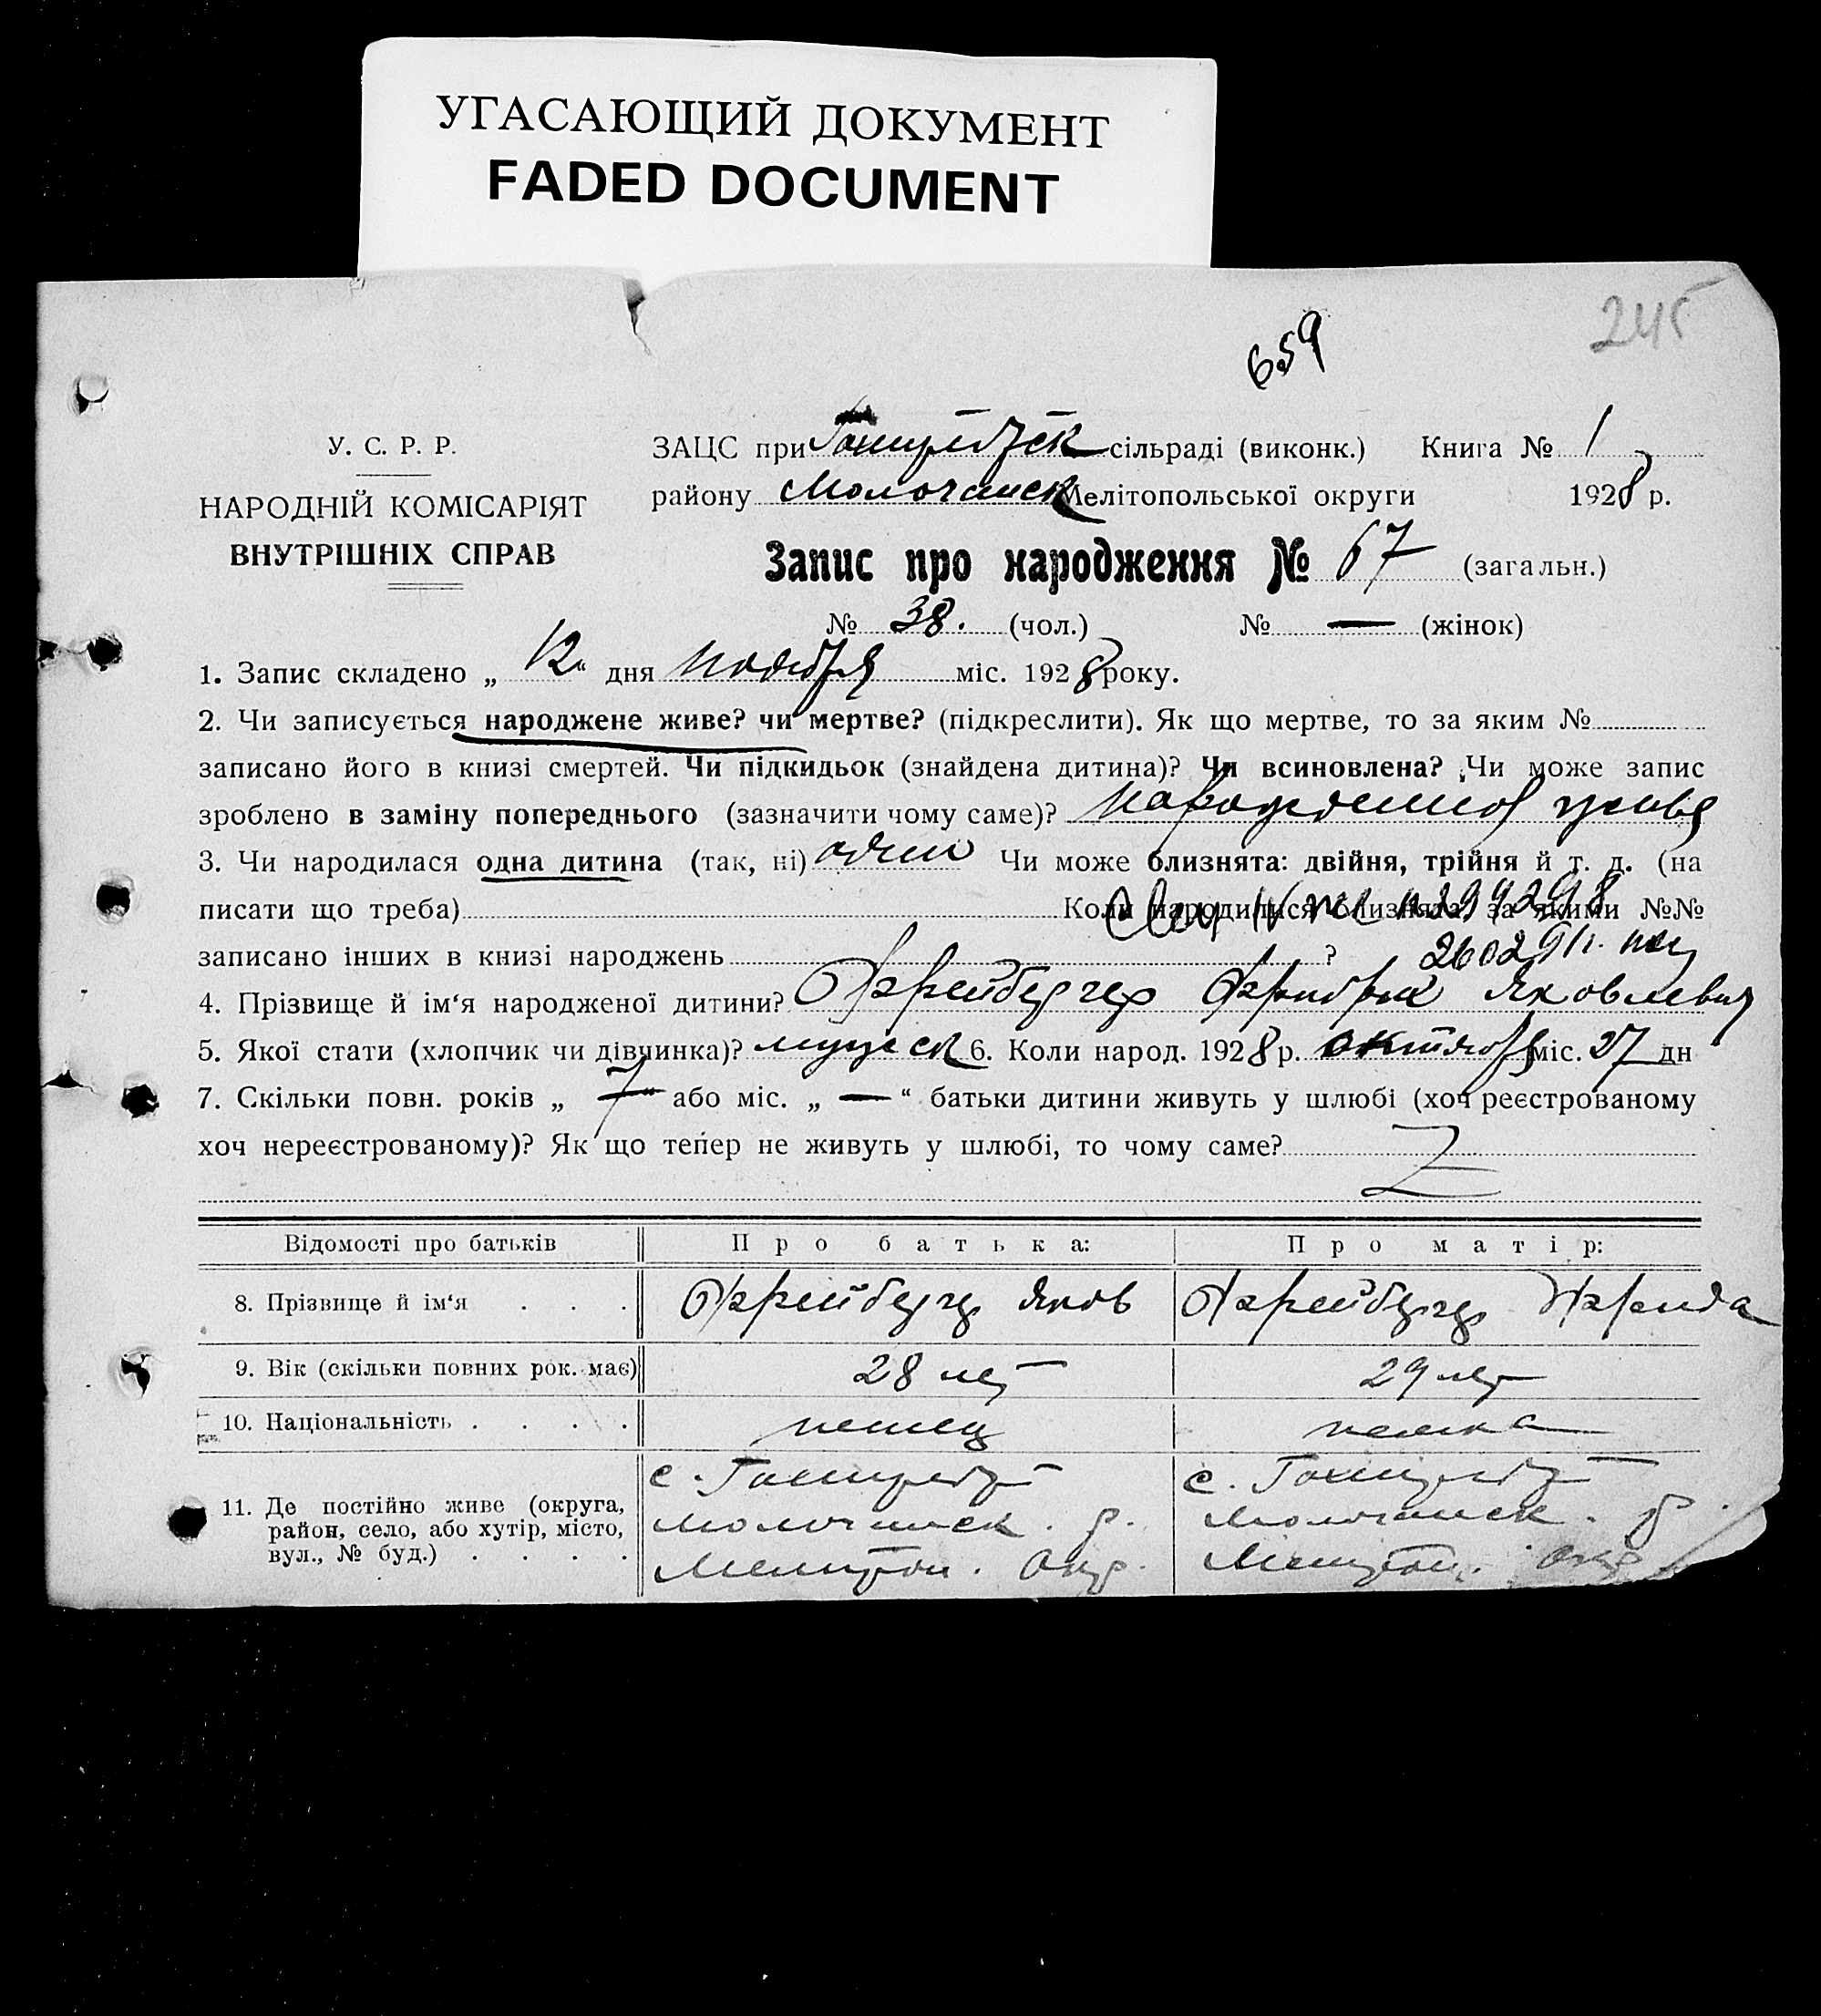 УГАСАЮЩИЙ ДОКУМЕНТ
FADED DOCUMENT
245
659
У. С. Р. Р.
НАРОДНІЙ КОМІСАРІЯТ
ВНУТРІШНІХ СПРАВ
ЗАЦС при сільраді (виконк.) Книга № 1
району Молочанск Мелітопольської округи 1928 р.
Запис про народження № 67 (загальн.)
№ 38. (чол.) № — (жінок)
1. Запис складено „ 12 “ дня ноября міс. 1928 року.
2. Чи записується народжене живе? чи мертве? (підкреслити). Як що мертве, то за яким №
записано його в книзі смертей. Чи підкидьок (знайдена дитина)? Чи всиновлена? Чи може запис
зроблено в заміну попереднього (зазначити чому саме)?
3. Чи народилася одна дитина (так, ні) один Чи може близнята: двійня, трійня й т. д. (на
писати що треба) Коли народилися близнята, за якими №№
записано інших в книзі народжень ?
4. Прізвище й ім‘я народженої дитини? Фрейбергер Фридрих Яковлевич
5. Якої стати (хлопчик чи дівчинка)? мужск 6. Коли народ. 1928 р. октября міс. 27 дн
7. Скільки повн. років „ 7 “ або міс. „ — “ батьки дитини живуть у шлюбі (хоч реєстрованому
хоч нереєстрованому)? Як що тепер не живуть у шлюбі, то чому саме?
Відомості про батьків Про батька: Про матір:
8. Прізвище й ім‘я . . . Фрейбергер Яков Фрейбергер Фрида
9. Вік (скільки повних рок. має) 28 лет 29 лет
10. Національність . . . . немец немка
11. Де постійно живе (округа,
район, село, або хутір, місто,
вул., № буд.) . . . .
Молочанск. р.
Мелитоп. Окр.
Молочанск. р.
Мелитоп. Окр.